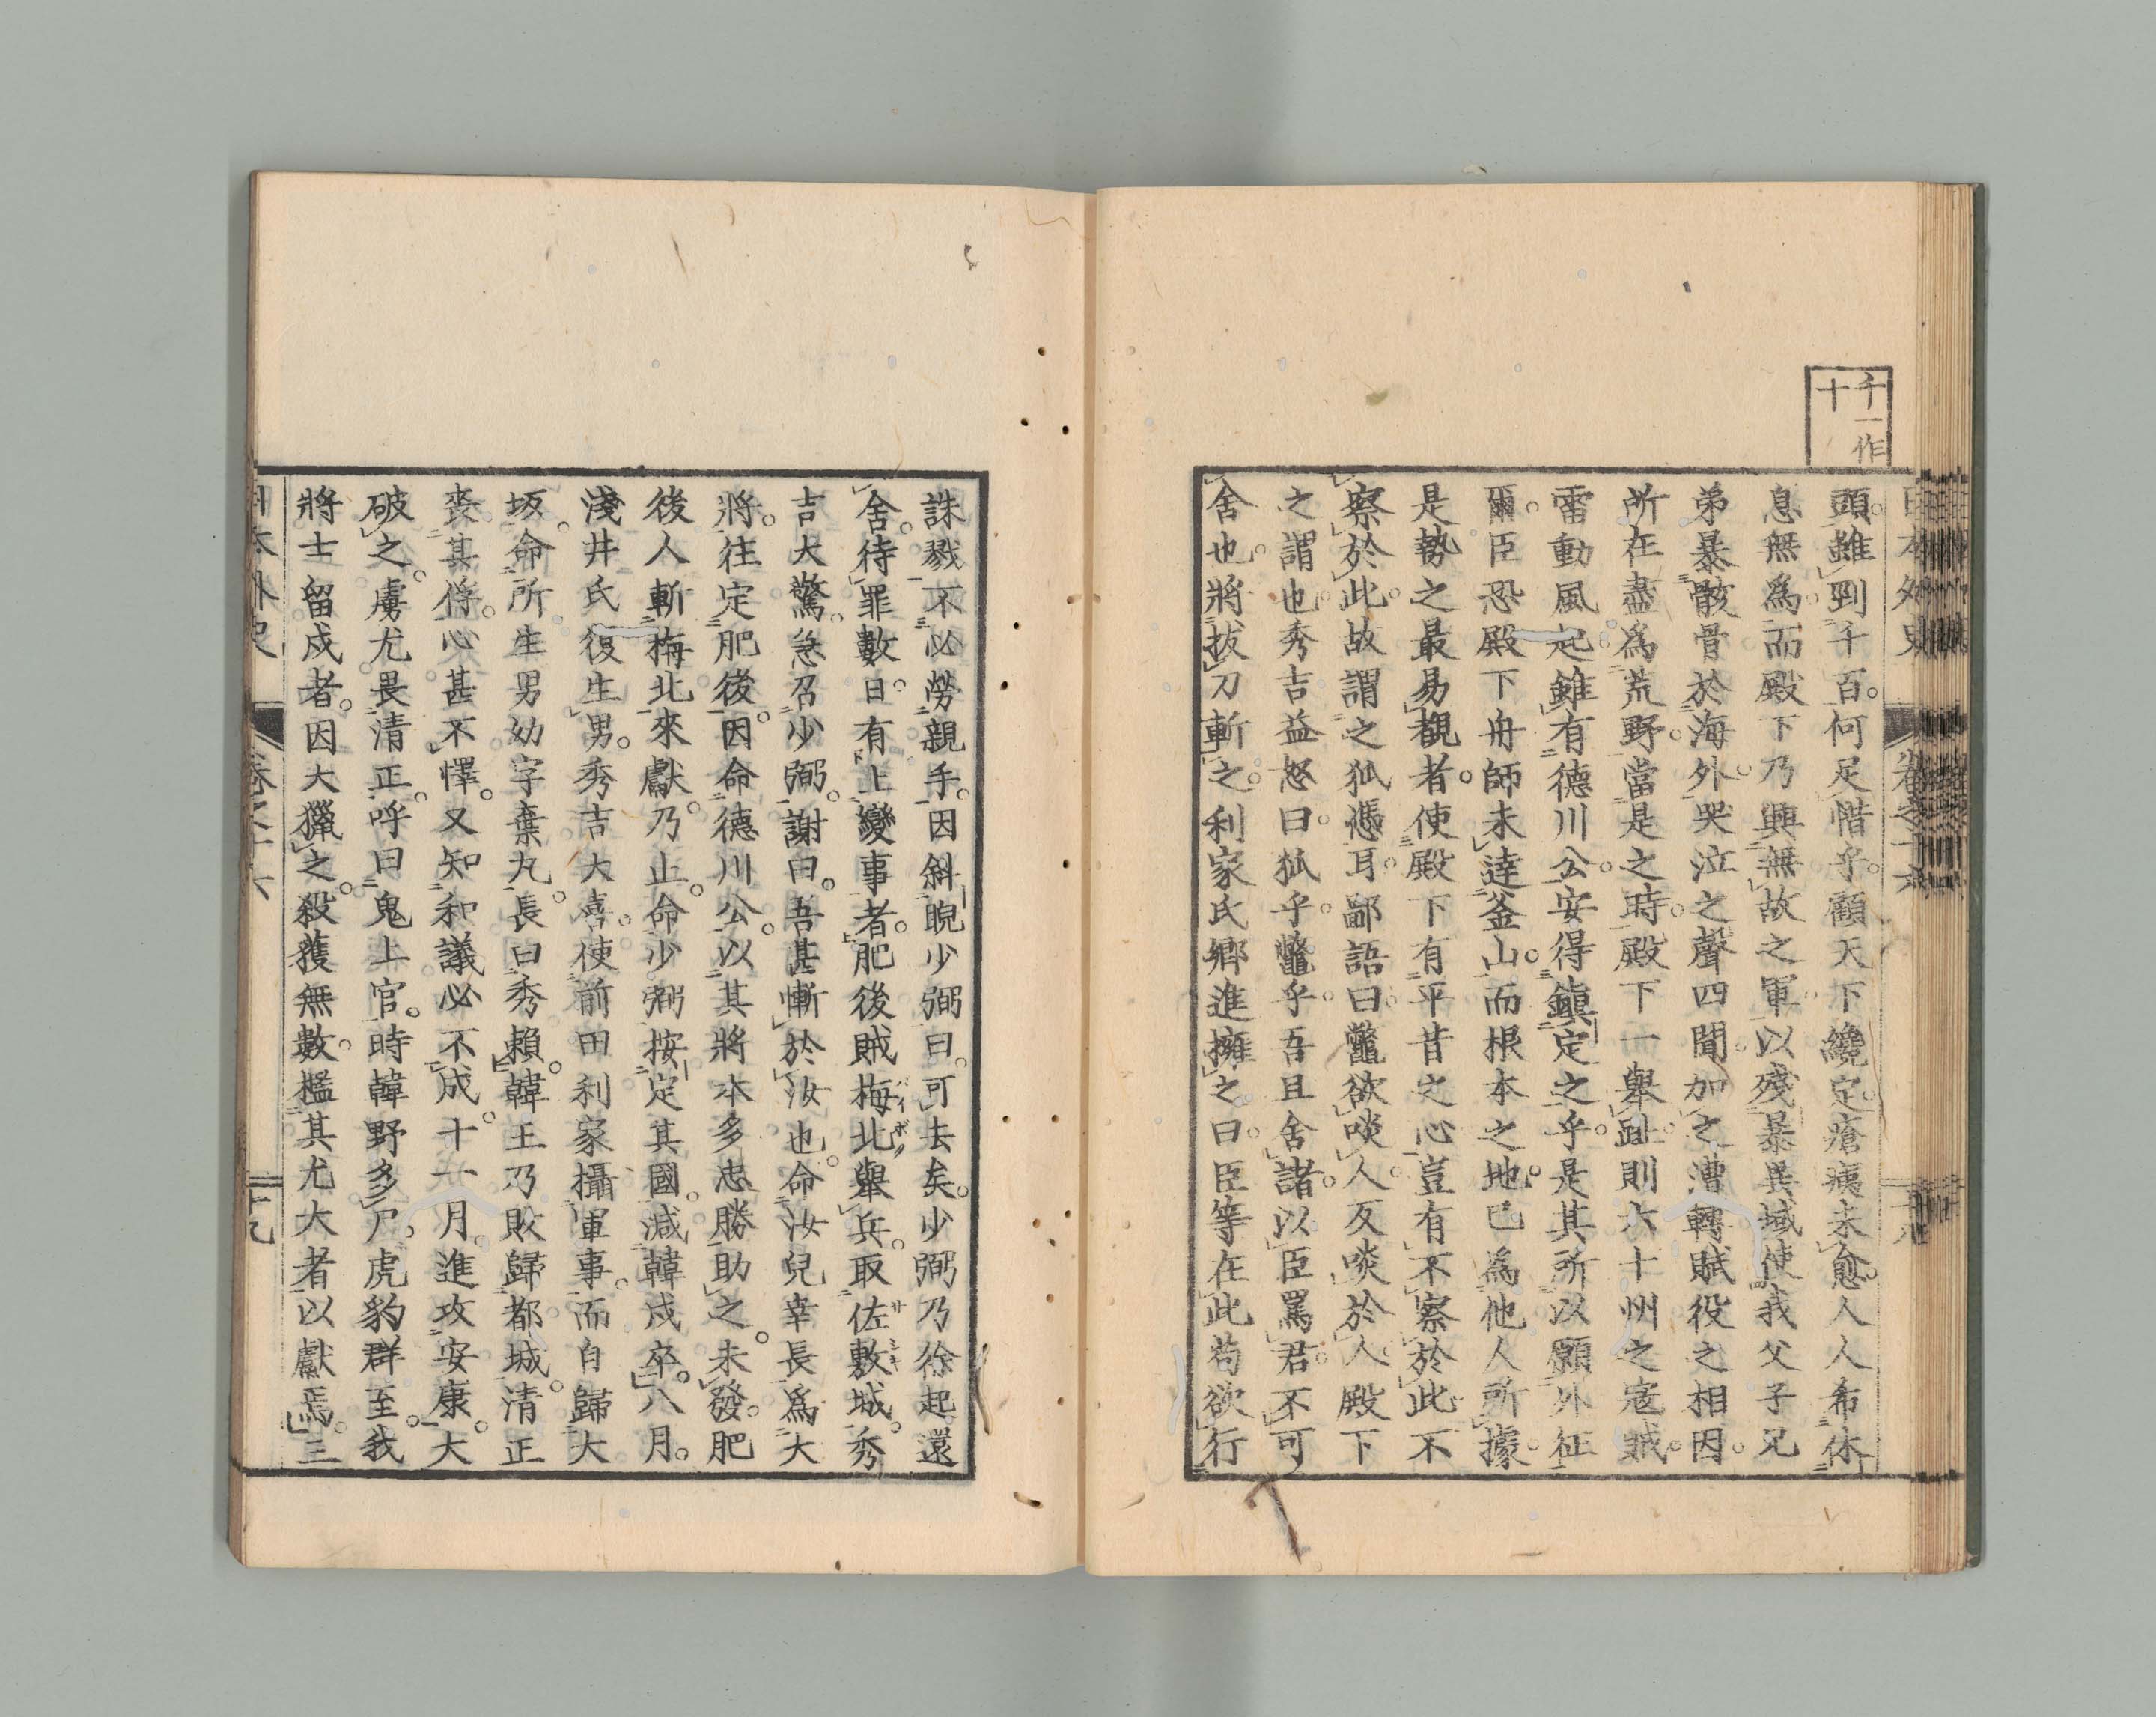 千一作
十
日本外史 卷之十六 十八
頭。雖到千百。何足惜乎。顧天下纔定。瘡痍未愈。人人希休
息無爲。而殿下乃興無故之軍。以殘暴異域。使我父子兄
弟暴骸骨於海外。哭泣之聲四聞。加之漕轉賦役之相因。
所在盡爲荒野。當是之時。殿下一舉趾。則六十州之寇賊。
雷動風起。雖有德川公。安得鎭定之乎。是其所以願外征
爾。臣恐殿下舟師未達釜山。而根本之地。已爲他人所據。
是勢之最易覩者。使殿下有平昔之心。豈有不察於此。不
察於此。故謂之狐憑耳。鄙語曰。鼈欲啖人。反啖於人。殿下
之謂也。秀吉益怒曰。狐乎。鼈乎。吾且舍諸。以臣罵君。不可
舍也。將拔刀斬之。利家氏鄉進擁之曰。臣等在此。苟欲行
誅戮。不必勞親手。因斜睨少弼曰。可去矣。少弼乃徐起。還
舍。待罪數日。有上變事者。肥後賊梅北擧兵。取佐敷城。秀
吉大驚。急召少弼。謝曰。吾甚慚於汝也。命汝兒幸長爲大
將。往定肥後。因命德川公。以其將本多忠勝助之。未發。肥
後人斬梅北來獻。乃止。命少弼按定其國。減韓戍卒。八月。
淺井氏復生男。秀吉大喜。使前田利家攝軍事。而自歸大
坂。命所生男幼字棄丸。長曰秀賴。韓王乃敗歸都城。清正
喪其俘。心甚不懌。又知和議必不成。十一月。進攻安康。大
破之。虜尤畏清正。呼曰鬼上官。時韓野多尸。虎豹群至。我
將士留戍者。因大獵之。殺獲無數。檻其尤大者以獻焉。三
日本外史 卷之十六 十九